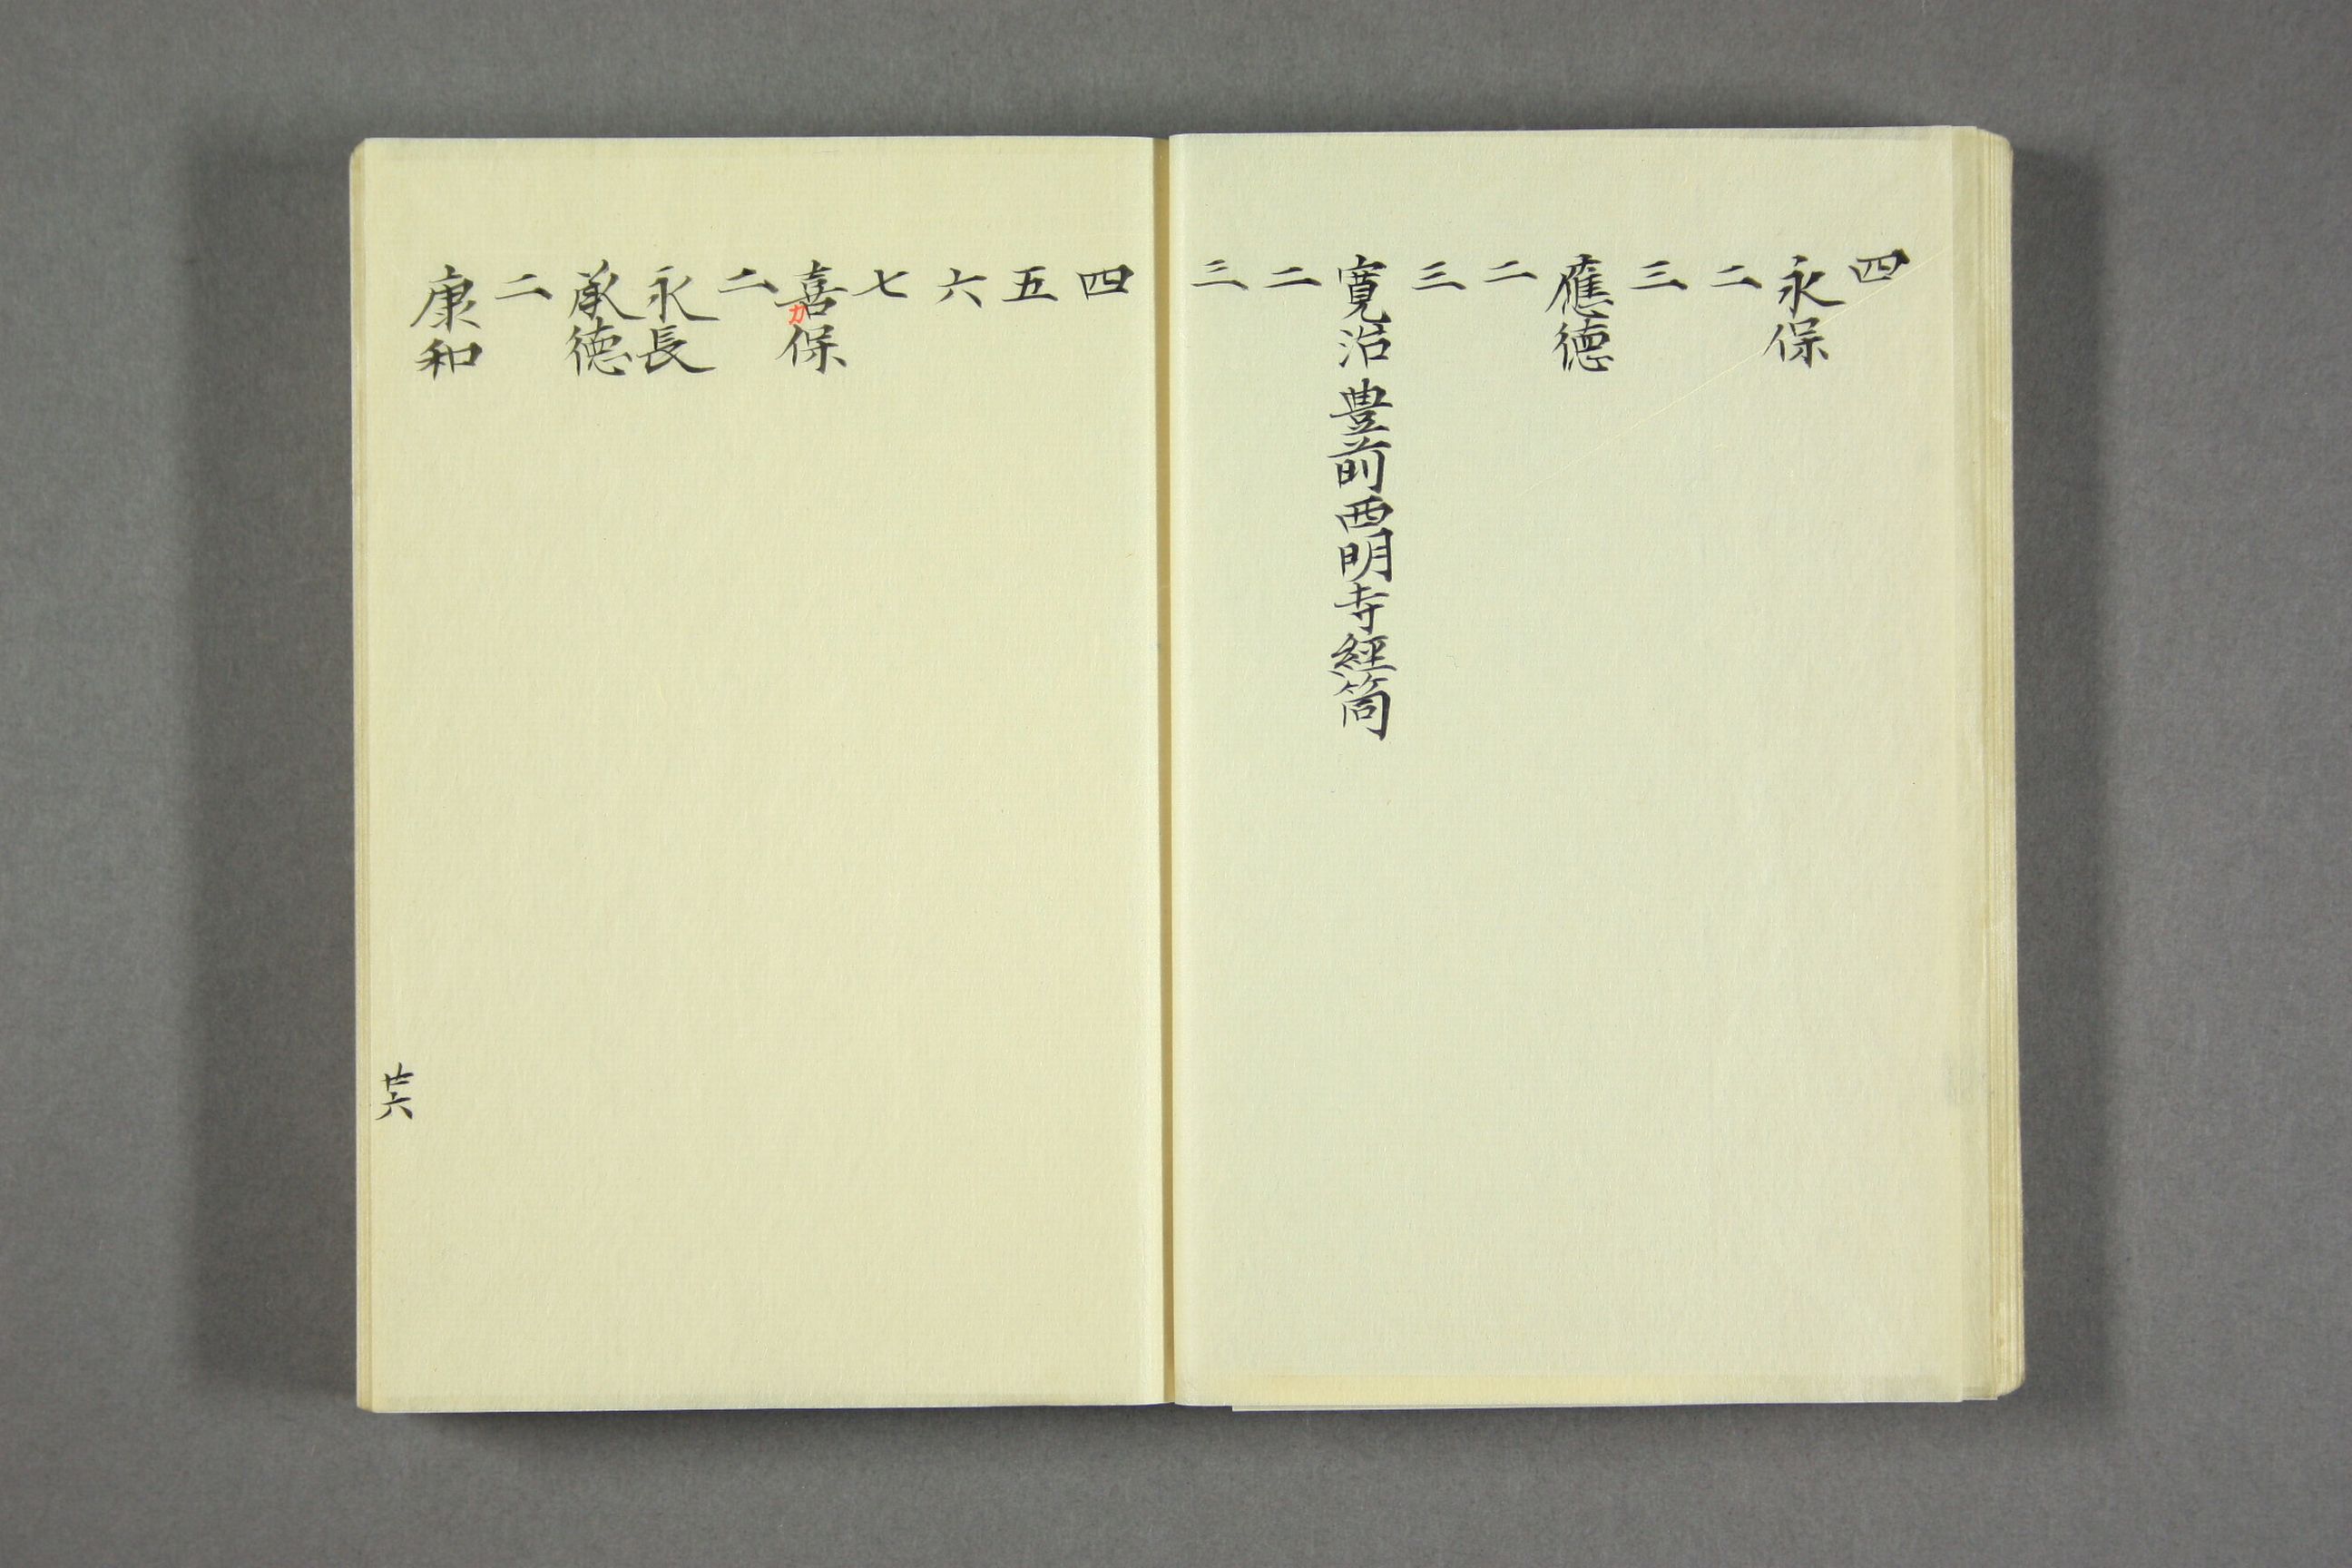 四
永保
二
三
應德
二
三
寛治 豊前西明寺經筒
二
三
四
五
六
七
喜保
カ
二
永長
承德
二
康和
廿六